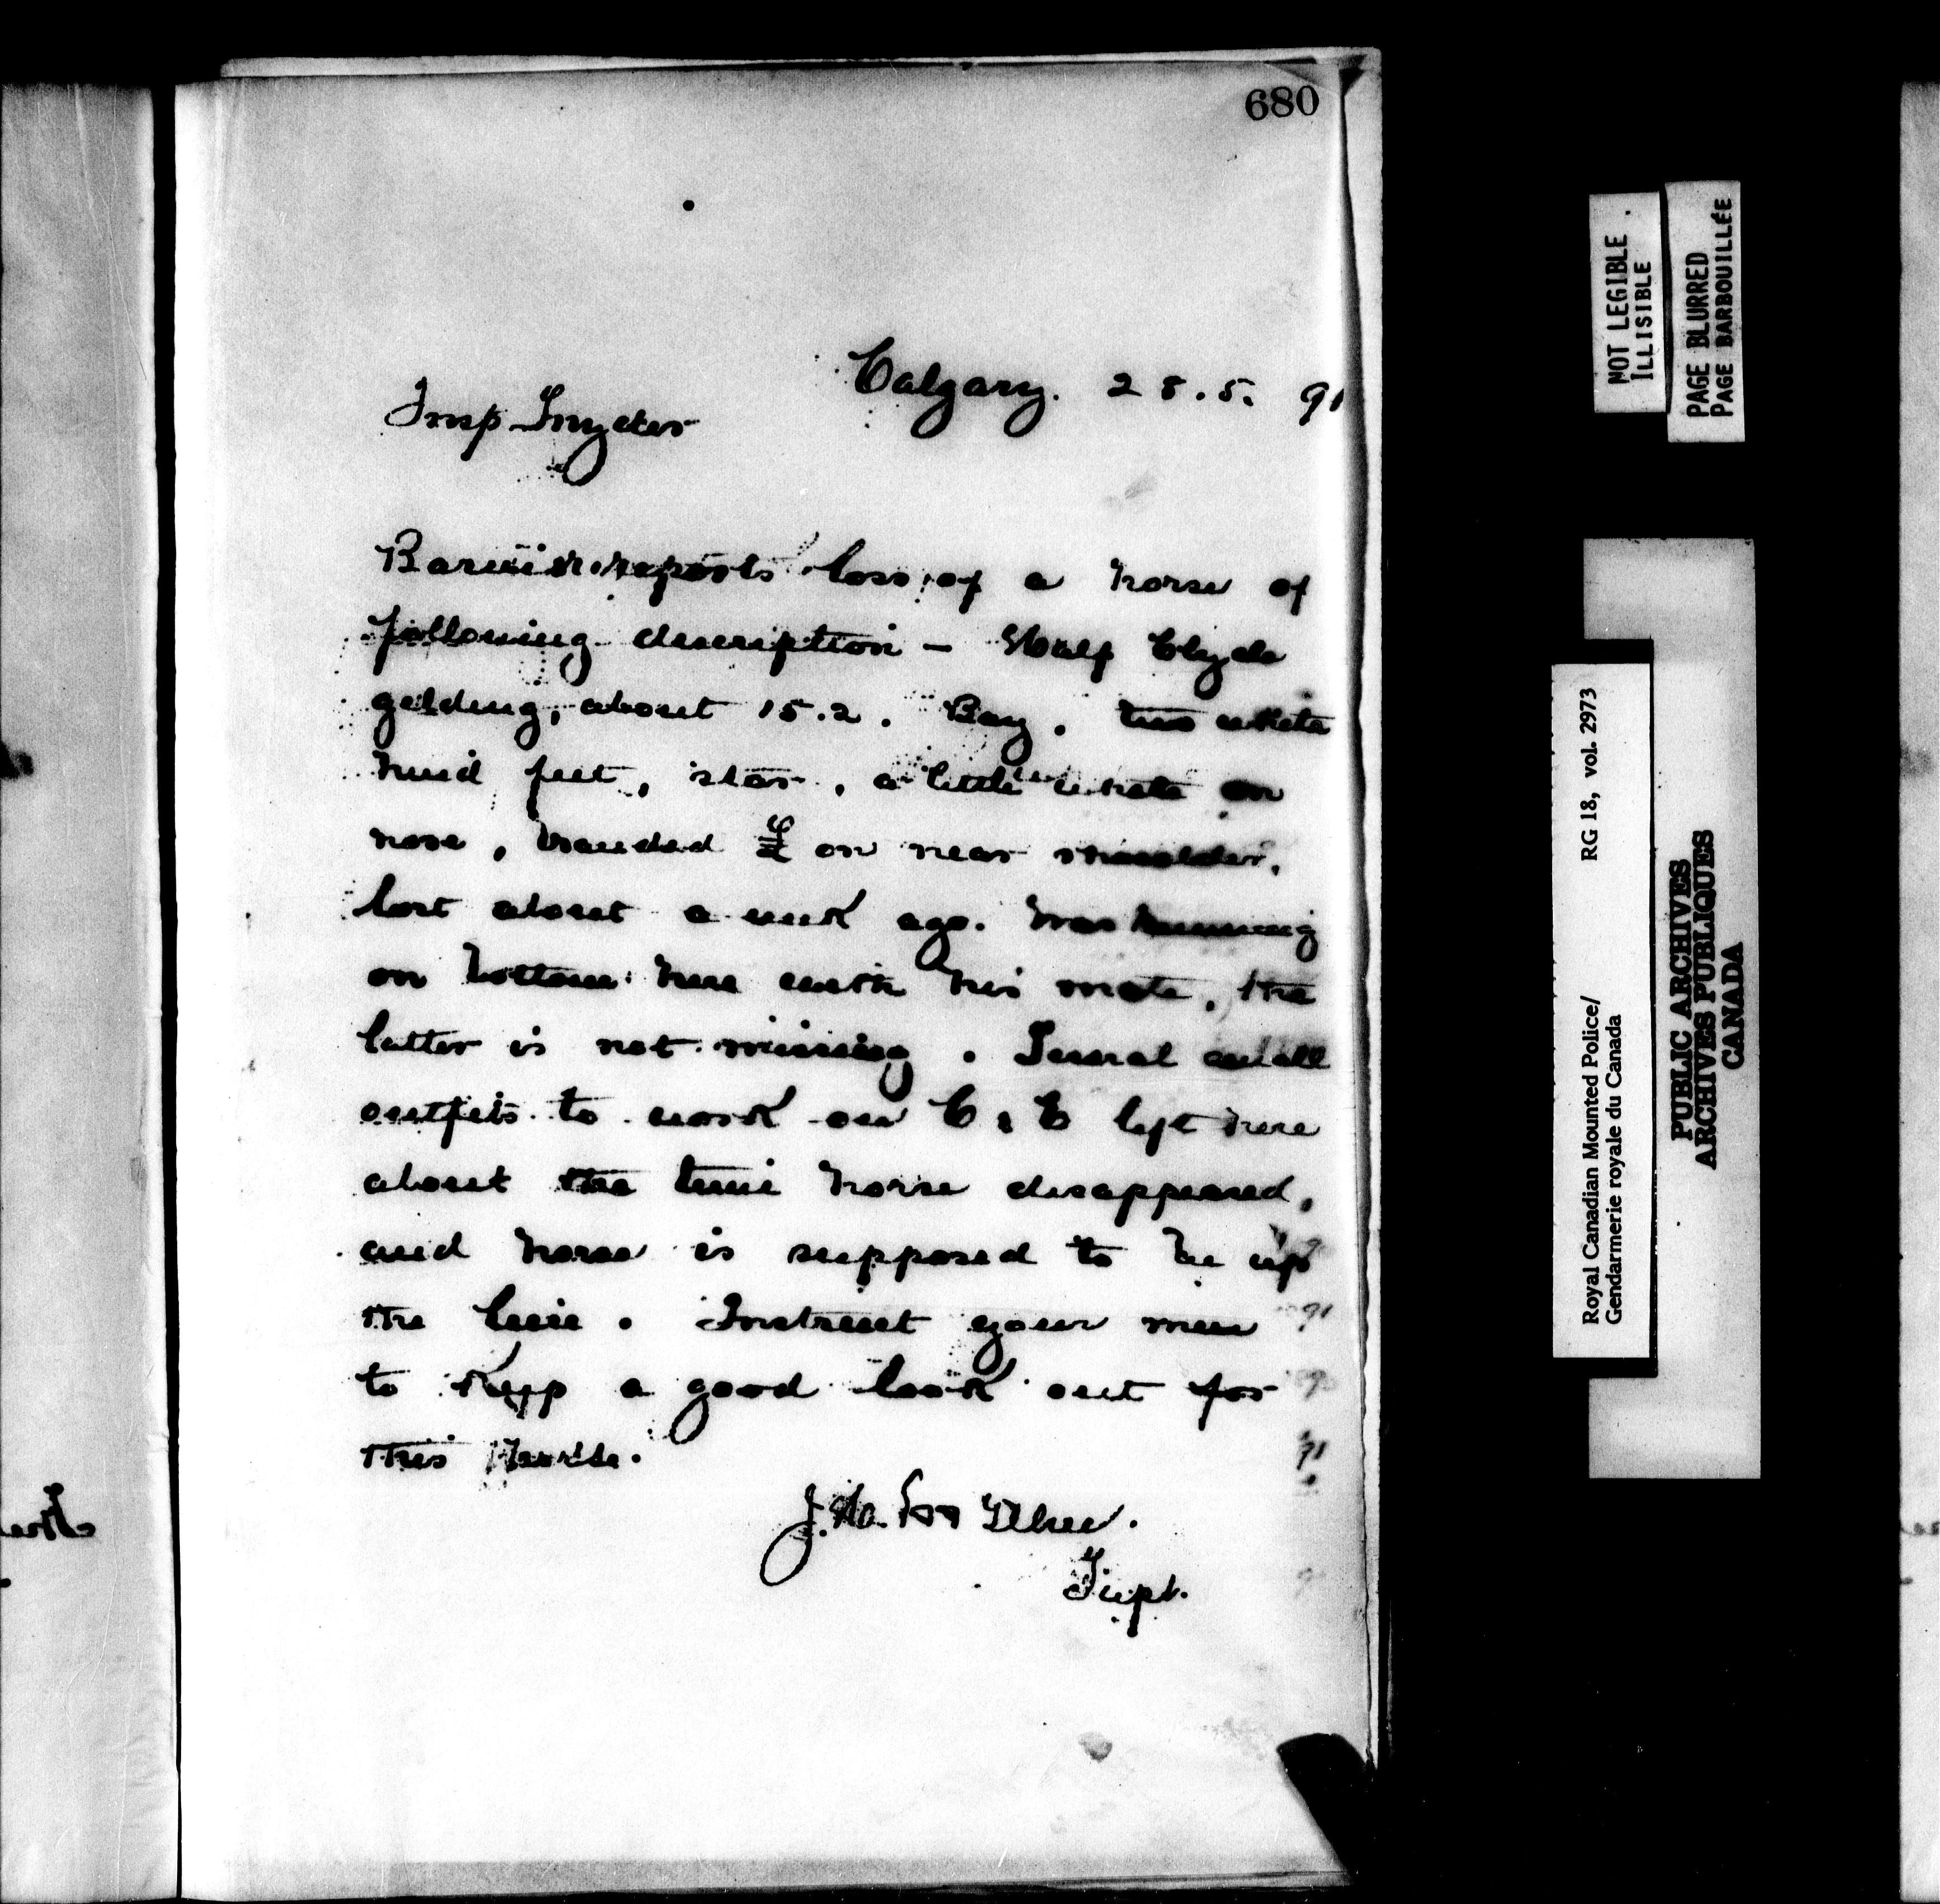 680
Calgary. 28.5.91
Insp Snyder
Barwis reports loss of a horse of
following description - Half Clyde
gelding, about 15.2. Bay. two white
hind feet, star, a little white on
nose, branded on near shoulder,
lost about a week ago. Was running
on bottom here with his mate, the
latter is not missing. Several small
outfits to work on C & E left here
about the time horse disappeared,
and horse is supposed to be up
the line. Instruct your men
to Kepp a good look out for
this horse.
J.H. McIllree.
Supt.
NOT LEGIBLE
ILLISIBLE
PAGE BLURRED
PAGE BARBOUILLÉE
Royal Canadian Mounted Police/ RG 18, vol. 2973
Gendarmerie royale du Canada
PUBLIC ARCHIVES
ARCHIVES PUBLIQUES
CANADA